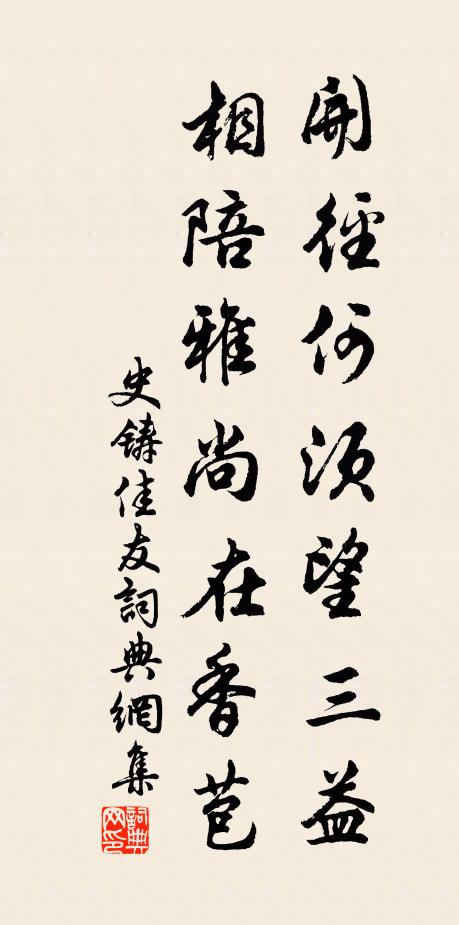 開徑何須望三益
相陪雅尚在香苞
史鑄佳友詞典網集
詞典網印